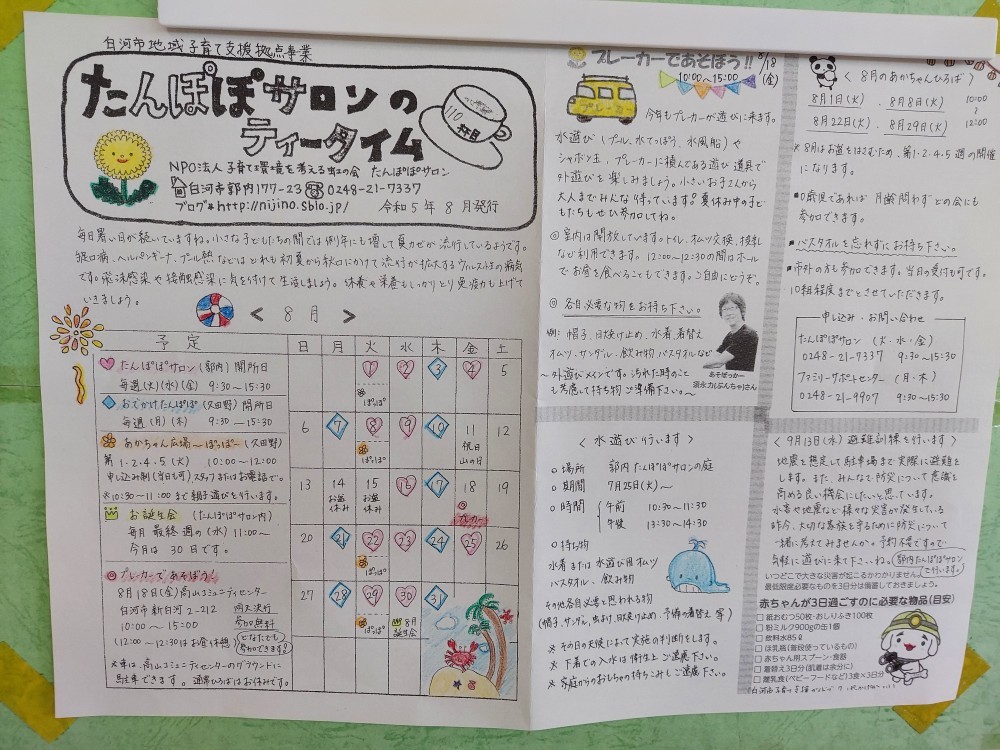 白河市地域子育て支援拠点事業
たんぽぽサロンの
ティータイム
110
杯目
NPO法人 子育て環境を考える虹の会 たんぽぽサロン
白河市郭内177-23 ☎0248-21-7337
ブログ*http://nijino.sblo.jp/ 令和5年8月発行
毎日暑い日が続いていますね。小さな子どもたちの間では例年にも増して夏カゼが流行しているようです。
手足口病、ヘルパンギーナ、プール熱などはどれも初夏から秋口にかけて流行が拡大するウイルス性の病気
です。飛沫感染や接触感染に気を付けて生活しましょう。休養や栄養もしっかりとり免疫力も上げて
いきましょう。
< 8月 >
予定
たんぽぽサロン(郭内)開所日
毎週(火)(水)(金) 9:30~15:30
おでかけたんぽぽ(久田野)開所日
毎週(月)(木) 9:30~15:30
あかちゃん広場~ぽっぽ~(久田野)
第1・2・4・5(火) 10:00~12:00
申し込み制(当日も可)スタッフまたはお電話で。
※10:30~11:00まで親子遊びを行います。
お誕生会 (たんぽぽサロン内)
毎月 最終週の(水)11:00~
今月は 30日です。
◎プレーカーであそぼう!
8月18日(金)高山コミュニティセンター
白河市新白河2-212 雨天決行
10:00~15:00 参加無料
(12:00~12:30はお昼休憩) どなたでも
参加できます!
※車は、高山コミュニティセンターのグラウンドに
駐車できます。通常ひろばはお休みです。
日 月 火 水 木 金 土
1 2 3 4 5
ぽっぽ
6 7 8 9 10 11 12
ぽっぽ 祝日
山の日
13 14 15 16 17 18 19
お盆休み お盆休み ◎プレーカー
20 21 22 23 24 25 26
ぽっぽ
27 28 29 30 31
ぽっぽ 8月誕生会
プレーカーであそぼう!! 8/18
10:00~15:00 (金)
プレーカー
今年もプレーカーが遊びに来ます。
水遊び(プール、水てっぽう、水風船)や
シャボン玉、プレーカーに積んである遊び道具で
外遊びを楽しみましょう。小さいお子さんから
大人までみんな待っています。夏休み中の子ど
もたちもぜひ参加してね。
◎室内は開放しています。トイレ、オムツ交換、授乳
など利用できます。12:00~12:30の間はホール
でお昼を食べることもできます。ご自由にどうぞ。
◎ 各自必要な物をお持ち下さい。
例:帽子、日焼け止め、水着、着替え
オムツ・サンダル、飲み物、バスタオルなど
~外遊びメインです。汚れた時のこと
も考慮して持ち物ご準備下さい。~
あそぼっかー
須永力(ぶんちゃ)さん
< 水遊び行います >
○ 場所 郭内たんぽぽサロンの庭
○ 期間 7月25日(火)~
○ 時間 午前 10:30~11:30
午後 13:30~14:30
○ 持ち物
水着または水遊び用オムツ
バスタオル、飲み物
その他各自必要と思われる物
(帽子、サンダル、虫よけ、日焼け止め、予備の着替え 等)
※ その日の天候によって実施の判断をします。
※ 下着での入水は衛生上ご遠慮下さい。
※ 家庭からのおもちゃの持ちこみご遠慮下さい。
< 8月のあかちゃんひろば >
8月1日(火)、8月8日(火) 10:00
8月22日(火)、8月29日(火) ~12:00
※8月はお盆をはさむため、第1・2・4・5週の開催
になります。
■0歳児であれば月齢問わずどの会にも
参加できます。
■バスタオルを忘れずにお持ち下さい。
■市外の方も参加できます。当日の受付も可です。
10組程度までとさせていただきます。
申し込み・お問い合わせ
たんぽぽサロン (火・水・金)
0248-21-7337 9:30~15:30
ファミリーサポートセンター (月・木)
0248-21-9907 9:30~15:30
< 9月13日(水)避難訓練を行います >
地震を想定して駐車場まで実際に避難を
します。また、みんなで防災について意識を
高める良い機会にしたいと思っています。
水害や地震など様々な災害が発生している
昨今、大切な家族を守るために防災について
一緒に考えてみませんか。予約不要ですので
気軽に遊びに来て下さいね。(郭内たんぽぽサロン
で行います。)
いつどこで大きな災害が起こるかわかりません。
最低限度必要なものを3日分は備蓄しておきましょう。
赤ちゃんが3日過ごすのに必要な物品(目安)
□ 紙おむつ50枚・おしりふき100枚
□ 粉ミルク900gの缶1個
□ 飲料水85ℓ
□ ほ乳瓶(普段使っているもの)
□ 赤ちゃん用スプーン・食器
□ 着替え3日分(肌着は余分に)
□ 離乳食(ベビーフードなど)3食×3日分